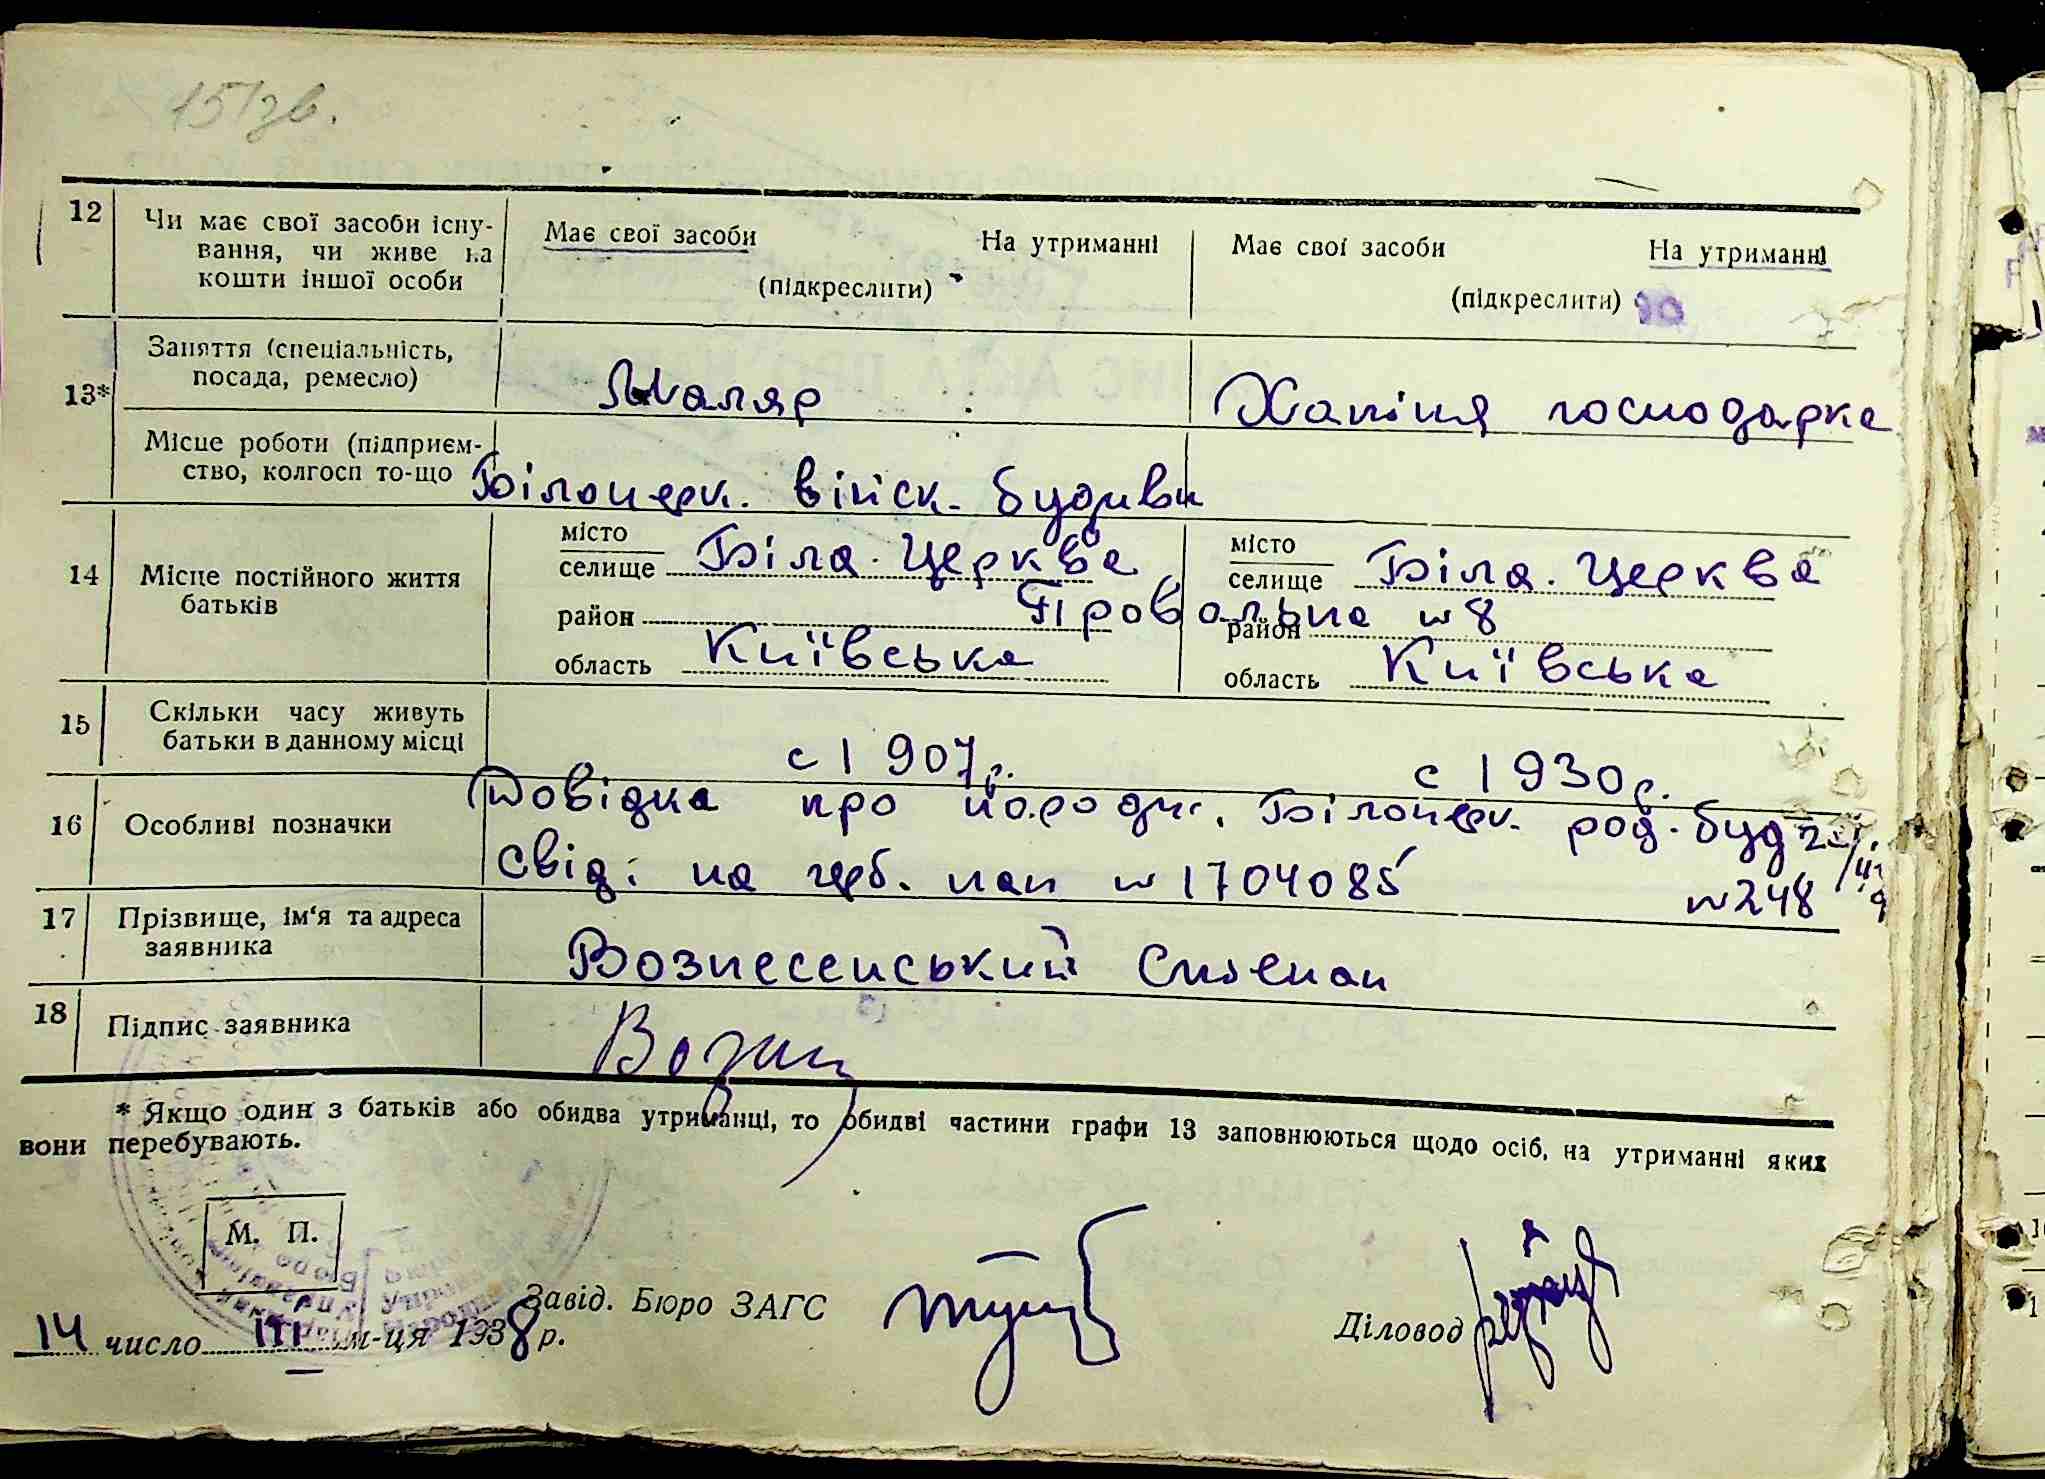 151зв.
12 Чи має свої засоби існу- Має свої засоби На утриманні Має свої засоби На утриманні
вання, чи живе на (підкреслити) (підкреслити)
кошти іншої особи
13* Заняття (спеціальність, Маляр Хатіня господарка
посада, ремесло)
Місце роботи (підприєм- Білоцерк. війск. будивн
ство, колгосп то-що
14 Місце постійного життя місто Біла. Церква місто Біла. Церква
батьків селище селище
район Провальна № 8 район
область Київська область Київська
15 Скільки часу живуть с 1907р. с 1930р.
батьки в данному місці
16 Особливі позначки Довідка про народж. Білоцерк. род. буд
Свід. на герб. пап № 1704085 № 248
17 Прізвище, ім'я та адреса Вознесенський Степан
заявника
18 Підпис заявника Возн
* Якщо один з батьків або обидва утриманці, то обидві частини графи 13 заповнюються щодо осіб, на утриманні яких
вони перебувають.
М. П.
Завід. Бюро ЗАГС Діловод
14 число III м-ця 1938 р.